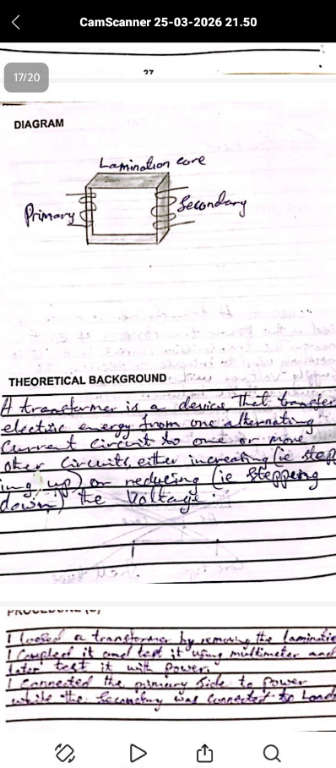 CamScanner 25-03-2026 21.50
17/20
27
DIAGRAM
Lamination core
Primary
Secondary
THEORETICAL BACKGROUND
A transformer is a device That transfer
electric energy from one alternating
Current circuit to one or more
other circuits, either increasing (ie stepp
ing up) or reducing (ie stepping
down) the Voltage.
I loosed a transformer by removing the laminatio
I coupled it and test it using multimeter and
later test it with power.
I connected the primary side to power
while the Secondary was connected to Load